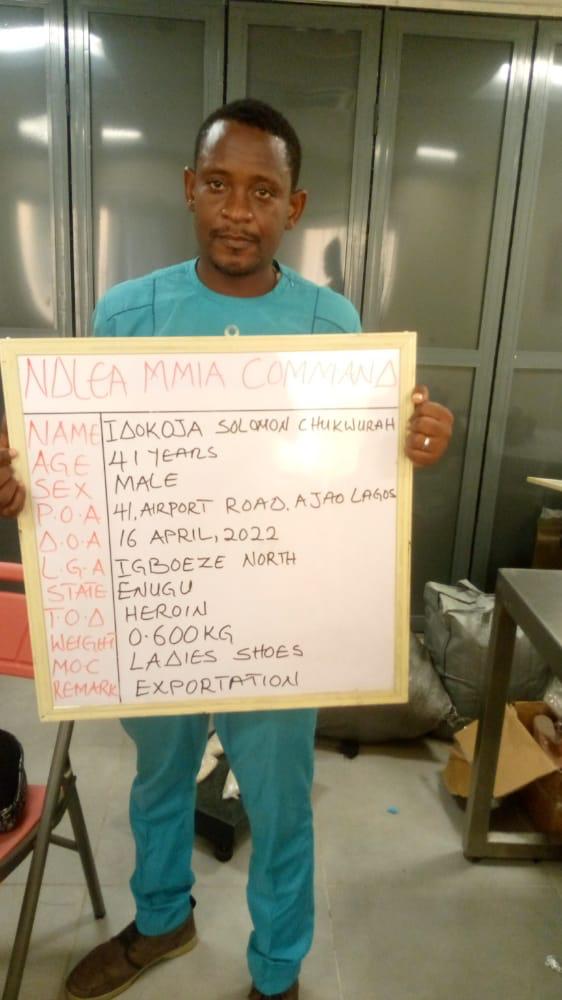 NDLEA MMIA COMMAND
NAME IDOKOJA SOLOMON CHUKWURAH
AGE 41 YEARS
SEX MALE
P.O.A 41, AIRPORT ROAD. AJAO LAGOS
D.O.A 16 APRIL, 2022
L.G.A IGBOEZE NORTH
STATE ENUGU
T.O.D HEROIN
WEIGHT 0.600KG
M.O.C LADIES SHOES
REMARK EXPORTATION